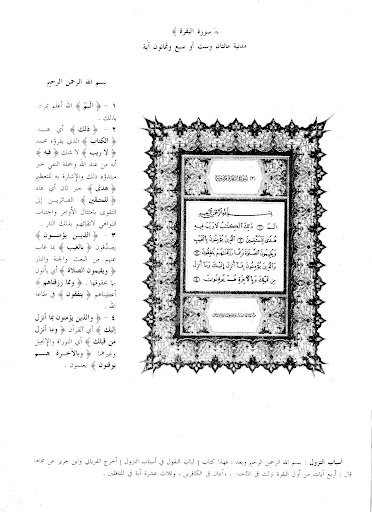 ﴿ سورة البقرة ﴾
مدنية مائتان وست أو سبع وثمانون آية
بسم الله الرحمن الرحيم
١ – ﴿ الٓمٓ ﴾ الله أعلم بمراده
بذلك .
٢ – ﴿ ذلك ﴾ أي هـــذا
﴿ الكتاب ﴾ الذي يقرؤه محمد
﴿ لا ريب ﴾ لا شك ﴿ فيه ﴾
أنه من عند الله وجملة النفي خبر
مبتدؤه ذلك والإشارة به للتعظيم
﴿ هدى ﴾ خبر ثان أي هاد
﴿ للمتقين ﴾ الصائرين إلى
التقوى بامتثال الأوامر واجتناب
النواهي لاتقائهم بذلك النار .
٣ – ﴿ الذيـن يؤمنـــون ﴾
يصدِّقون ﴿ بالغيب ﴾ بما غاب
عنهم من البعث والجنة والنار
﴿ ويقيمون الصلاة ﴾ أي يأتون
بها بحقوقها . ﴿ ومما رزقناهم ﴾
أعطيناهم ﴿ ينفقون ﴾ في طاعة
الله .
٤ – ﴿ والذين يؤمنون بما أنزل
إليك ﴾ أي القرآن ﴿ وما أنزل
من قبلك ﴾ أي التوراة والإنجيل
وغيرهما ﴿ وبالآخـرة هـــم
يوقنون ﴾ يعلمون .
بِسْمِ اللَّهِ الرَّحْمَٰنِ الرَّحِيمِ
الٓمٓ ۝ ذَٰلِكَ الْكِتَٰبُ لَا رَيْبَ فِيهِ
هُدًى لِّلْمُتَّقِينَ ۝ الَّذِينَ يُؤْمِنُونَ بِالْغَيْبِ
وَيُقِيمُونَ الصَّلَوٰةَ وَمِمَّا رَزَقْنَٰهُمْ يُنفِقُونَ ۝
وَالَّذِينَ يُؤْمِنُونَ بِمَآ أُنزِلَ إِلَيْكَ وَمَآ أُنزِلَ
مِن قَبْلِكَ وَبِالْءَاخِرَةِ هُمْ يُوقِنُونَ ۝
أسباب النزول : بسم الله الرحمن الرحيم وبعد : فهذا كتاب [ لباب النقول في أسباب النزول ] أخرج الفريابي وابن جرير عن مجاهد
قال : أربع آيات من أول البقرة نزلت في المؤمنين ، وآيتان في الكافرين ، وثلاث عشرة آية في المنافقين .